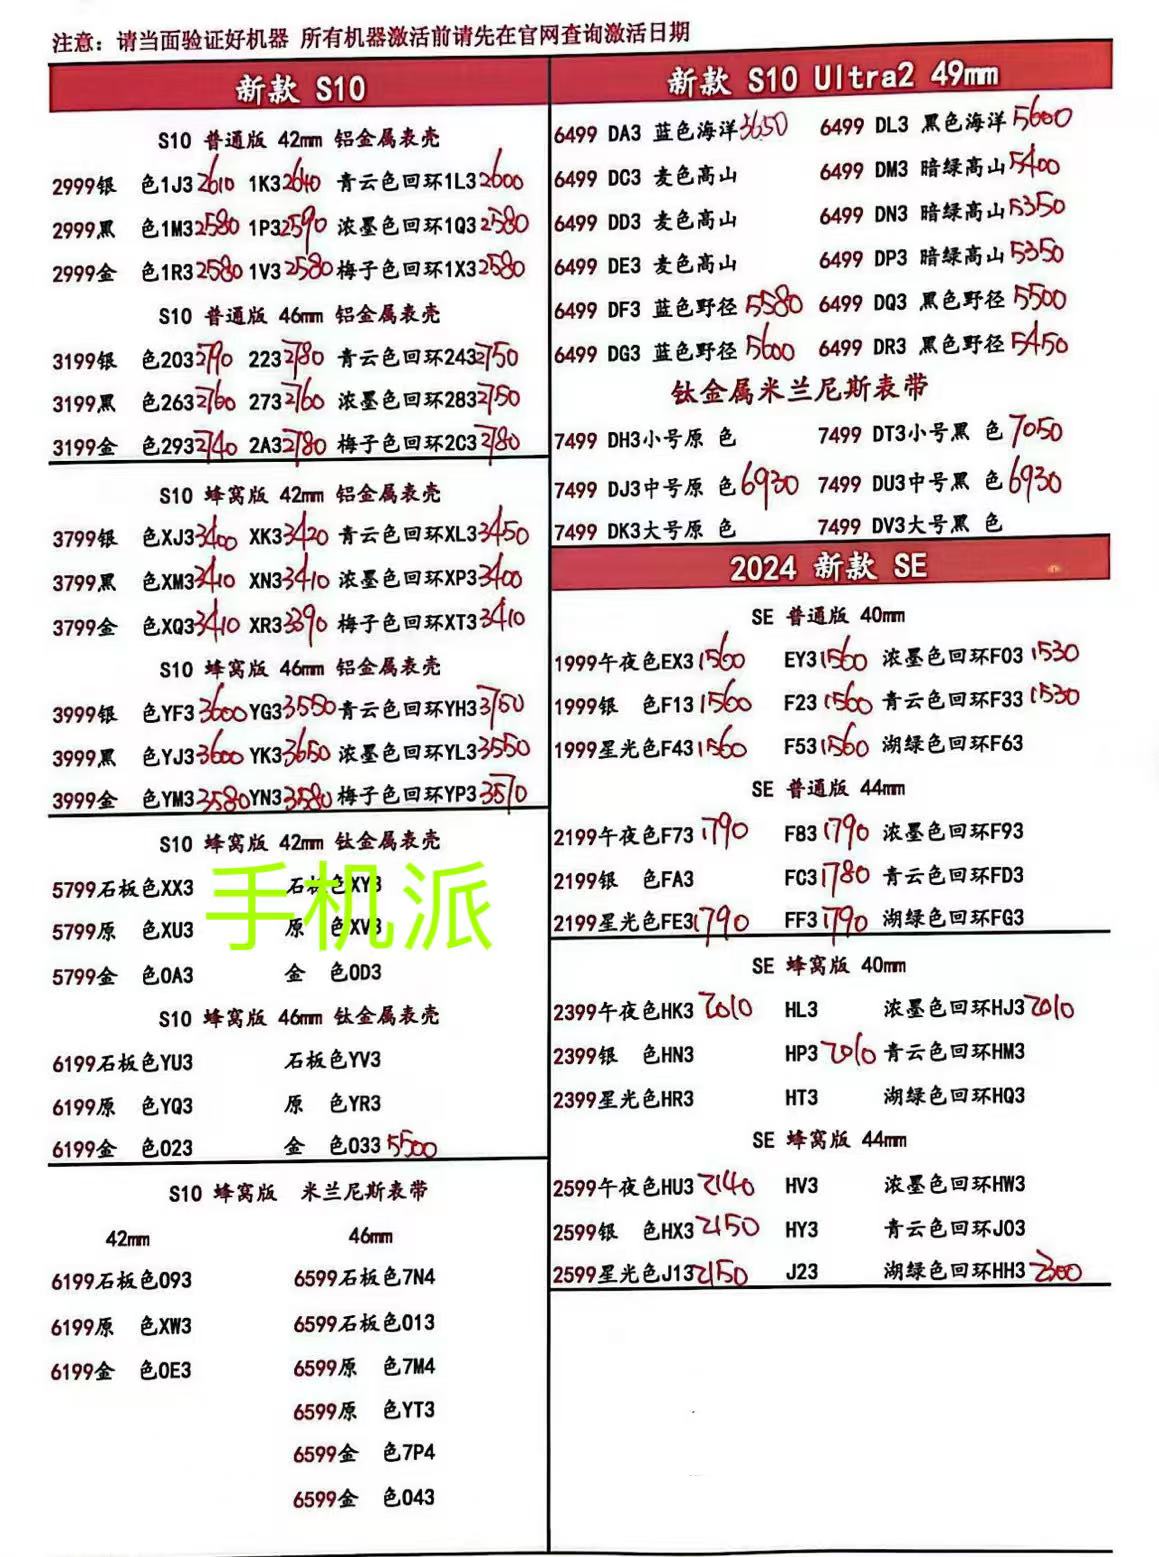 注意：请当面验证好机器 所有机器激活前请先在官网查询激活日期
新款 S10
S10 普通版 42mm 铝金属表壳
2999银 色1J3 2610 1K3 2640 青云色回环1L3 2600
2999黑 色1M3 2580 1P3 2590 浓墨色回环1Q3 2580
2999金 色1R3 2580 1V3 2580 梅子色回环1X3 2580
S10 普通版 46mm 铝金属表壳
3199银 色203 2790 223 2780 青云色回环243 2750
3199黑 色263 2760 273 2760 浓墨色回环283 2750
3199金 色293 2740 2A3 2780 梅子色回环2C3 2780
S10 蜂窝版 42mm 铝金属表壳
3799银 色XJ3 3400 XK3 3420 青云色回环XL3 3450
3799黑 色XM3 3410 XN3 3410 浓墨色回环XP3 3400
3799金 色XQ3 3410 XR3 3390 梅子色回环XT3 3410
S10 蜂窝版 46mm 铝金属表壳
3999银 色YF3 3600 YG3 3550 青云色回环YH3 3750
3999黑 色YJ3 3600 YK3 3650 浓墨色回环YL3 3550
3999金 色YM3 3580 YN3 3580 梅子色回环YP3 3570
S10 蜂窝版 42mm 钛金属表壳
5799石板色XX3 石板色XY3
手机派
5799原 色XU3 原 色XV3
5799金 色0A3 金 色0D3
S10 蜂窝版 46mm 钛金属表壳
6199石板色YU3 石板色YV3
6199原 色YQ3 原 色YR3
6199金 色023 金 色033 5500
S10 蜂窝版 米兰尼斯表带
42mm 46mm
6199石板色093 6599石板色7N4
6199原 色XW3 6599石板色013
6199金 色0E3 6599原 色7M4
6599原 色YT3
6599金 色7P4
6599金 色043
新款 S10 Ultra2 49mm
6499 DA3 蓝色海洋 3650 6499 DL3 黑色海洋 5600
6499 DC3 麦色高山 6499 DM3 暗绿高山 5400
6499 DD3 麦色高山 6499 DN3 暗绿高山 5350
6499 DE3 麦色高山 6499 DP3 暗绿高山 5350
6499 DF3 蓝色野径 5580 6499 DQ3 黑色野径 5500
6499 DG3 蓝色野径 5600 6499 DR3 黑色野径 5450
钛金属米兰尼斯表带
7499 DH3小号原 色 7499 DT3小号黑 色 7050
7499 DJ3中号原 色 6930 7499 DU3中号黑 色 6930
7499 DK3大号原 色 7499 DV3大号黑 色
2024 新款 SE
SE 普通版 40mm
1999午夜色EX3 1560 EY3 1560 浓墨色回环F03 1530
1999银 色F13 1560 F23 1560 青云色回环F33 1530
1999星光色F43 1560 F53 1560 湖绿色回环F63
SE 普通版 44mm
2199午夜色F73 1790 F83 1790 浓墨色回环F93
2199银 色FA3 FC3 1780 青云色回环FD3
2199星光色FE3 1790 FF3 1790 湖绿色回环FG3
SE 蜂窝版 40mm
2399午夜色HK3 2010 HL3 浓墨色回环HJ3 2010
2399银 色HN3 HP3 2010 青云色回环HM3
2399星光色HR3 HT3 湖绿色回环HQ3
SE 蜂窝版 44mm
2599午夜色HU3 2140 HV3 浓墨色回环HW3
2599银 色HX3 2150 HY3 青云色回环J03
2599星光色J13 2150 J23 湖绿色回环HH3 2300